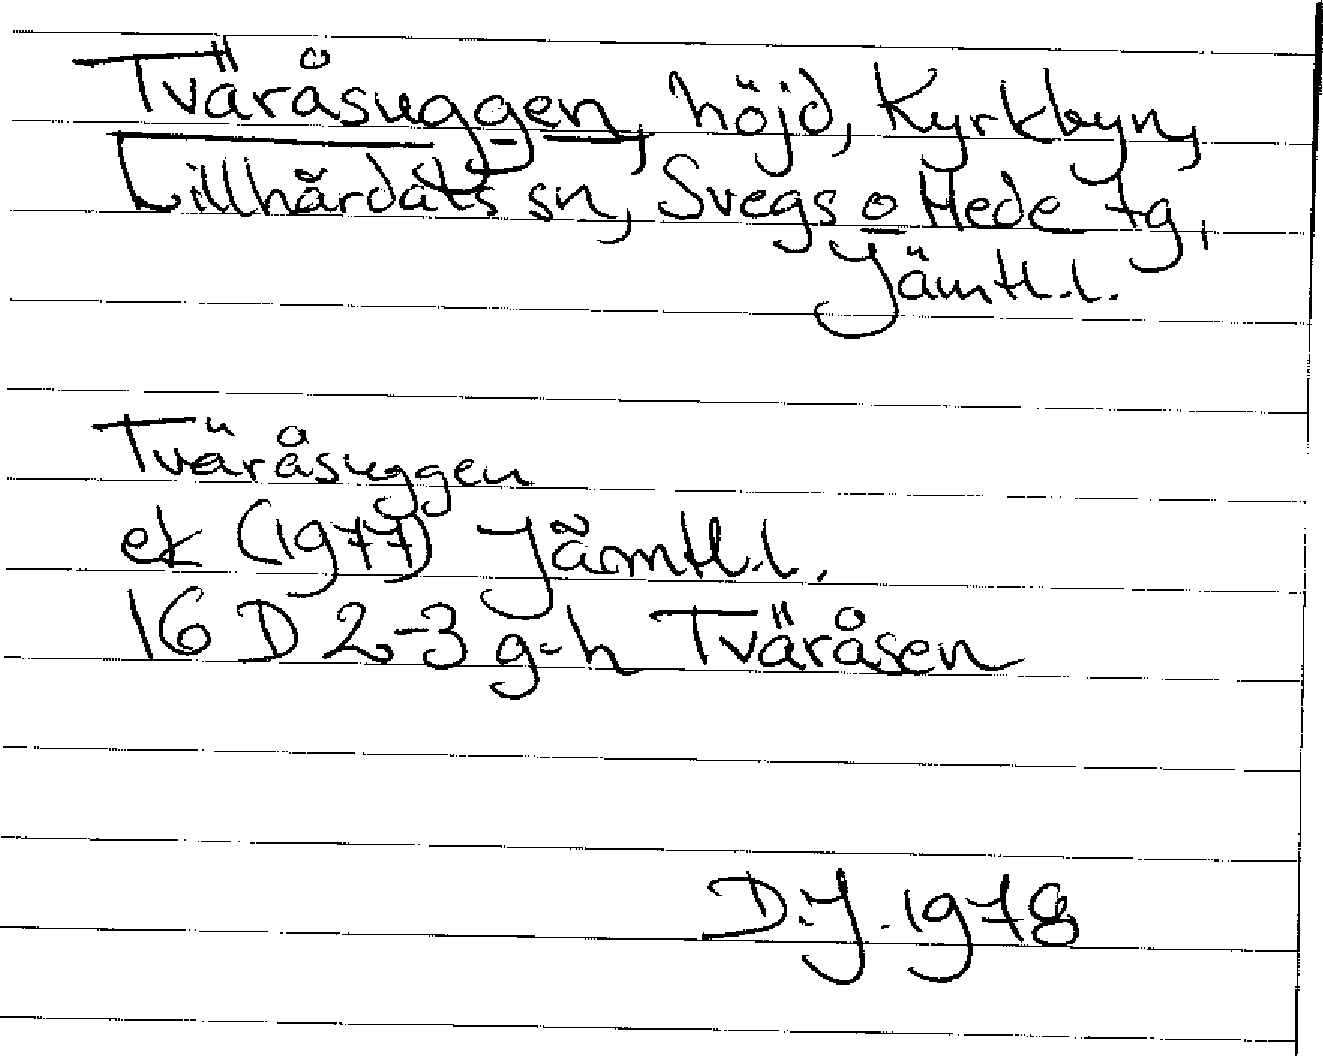 Tväråsuggen, höjd, Kyrkbyn,
Lillhärdals sn, Svegs o Hede tg,
Jämtl.l.
Tväråsuggen
ek (1977) Jämtl.l.
16 D 2-3 g-h Tväråsen
D.J. 1978